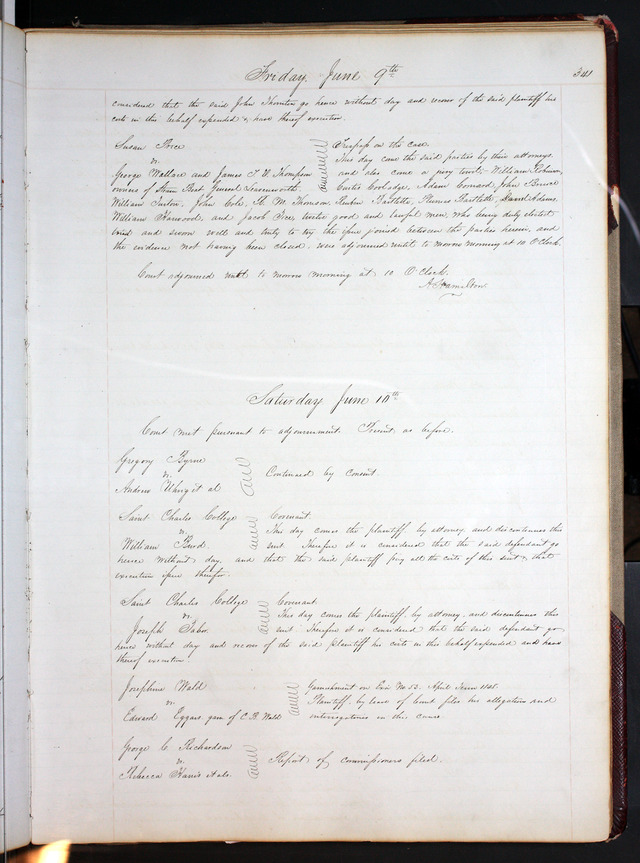 Friday June 9th
341
considered that the said John Thornton go hence without day and recover of the said plaintiff his
costs in this behalf expended & have thereof execution.
Susan Price
vs.
Trespass on the Case
This day came the said parties by their attorneys
George Wallace and James T. H. Thompson
and also came a jury towit, William
owners of Steam Boat General Leavenworth
Curtis Coolidge, Adam Conrad, John Bruce
William Tuston, John Cole, Th. M. Thomson, Reuben Bartlett, Phineas Bartlett, David Adams,
William Harwood, and Jacob Price, twelve good and lawful men, who being duly elected
tried and sworn well and truly to try the issue joined between the parties herein, and
the evidence not having been closed, were adjourned until to morrow morning at 10 O'Clock.
Court adjourned until to morrow morning at 10 O'Clock.
A. Hamilton
Saturday June 10th
Court met pursuant to adjournment. Present as before.
Gregory Byrne
vs.
Continued by consent.
Andrew et al
Saint Charles College
Covenant.
vs.
This day comes the plaintiff by attorney and discontinues this
William Burd.
suit. Therefore it is considered that the said defendant go
hence without day, and that the said plaintiff pay all the costs of this suit & that
execution issue therefor.
Saint Charles College
Covenant.
vs.
This day comes the plaintiff by attorney, and discontinues this
Joseph Tabor
suit. Therefore it is considered that the said defendant go
hence without day and recover of the said plaintiff his costs in this behalf expended and have
thereof execution.
Josephine Wald
Garnishment on Exn No. 53. April Term 1848.
vs.
Plaintiff by leave of Court files her allegations and
Edward Eggars garn of C. B. Wald
interrogatories in this cause.
George C. Richardson
vs.
Report of commissioners filed.
Rebecca Harris et als.